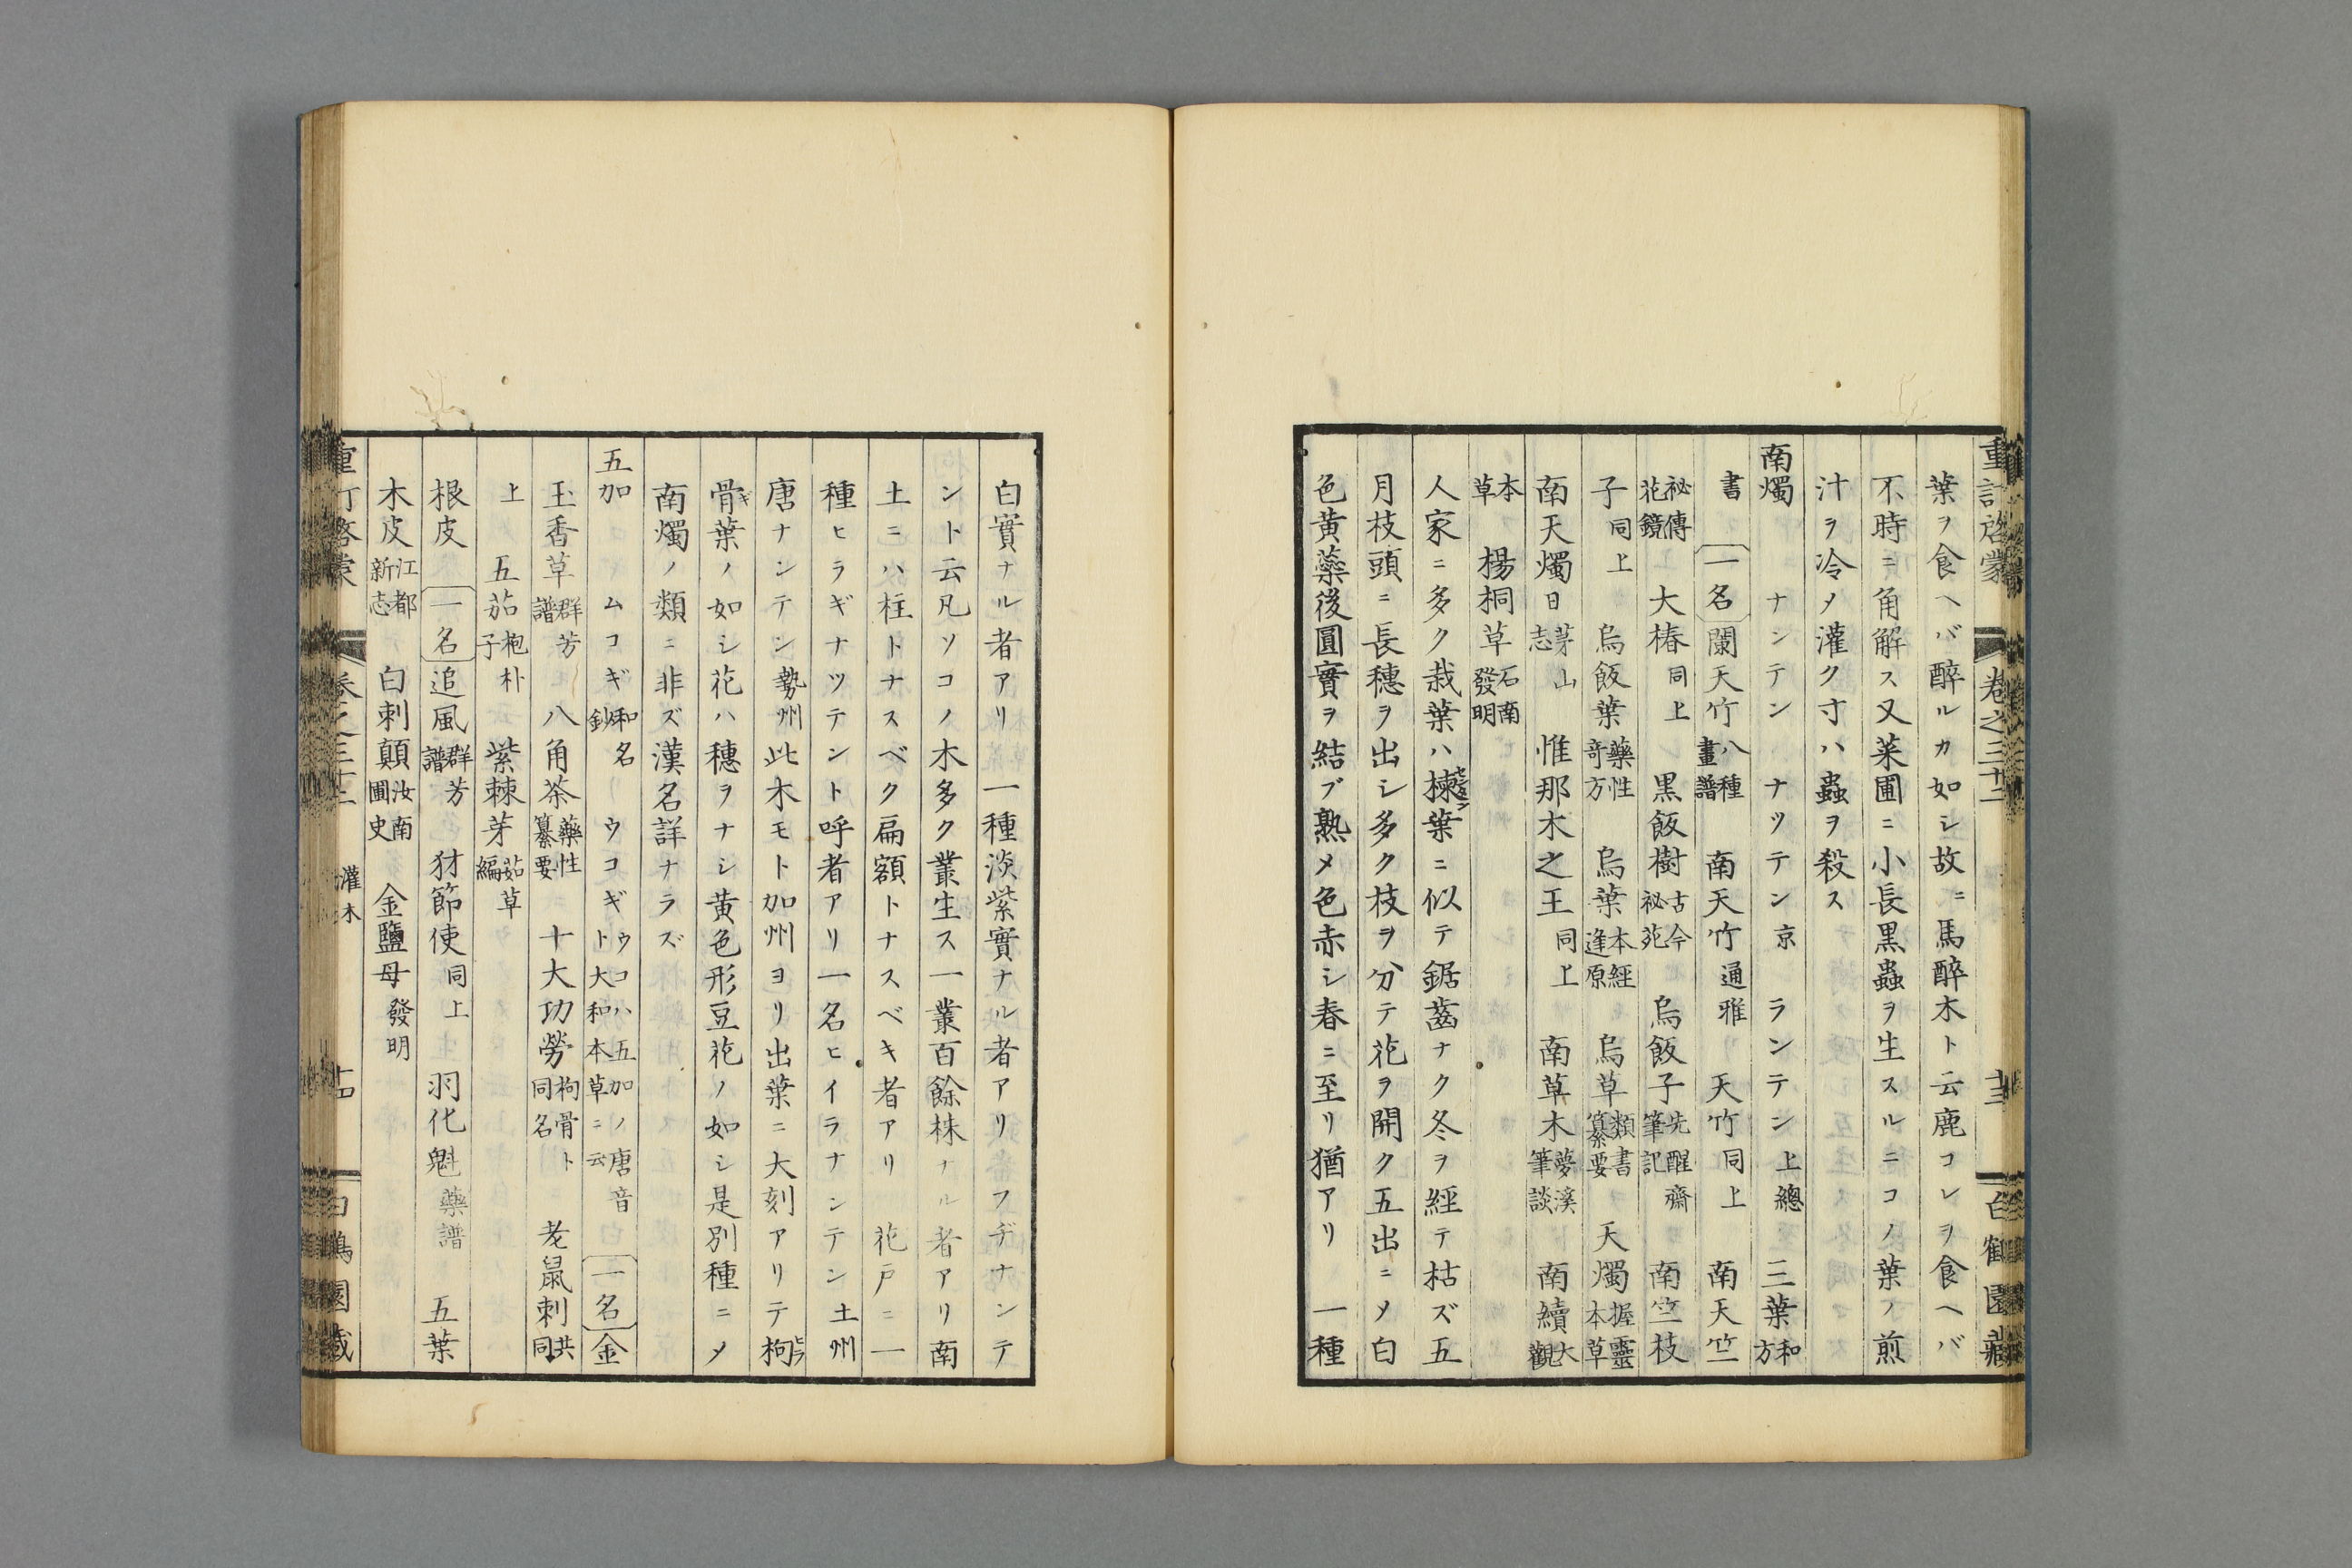 重訂啓蒙 卷之三十二 十三 白鶴園藏
葉ヲ食ヘバ醉ルカ如シ故ニ馬醉木ト云鹿コレヲ食ヘバ
不時ニ角解ス又菜圃ニ小長黒蟲ヲ生スルニコノ葉ノ煎
汁ヲ冷メ灌ク寸ハ蟲ヲ殺ス
南燭 ナンテン ナツテン京 ランテン上總 三葉和方
書 一名 闌天竹八種畫譜 南天竹通雅 天竹同上 南天竺
祕傳花鏡 大椿同上 黒飯樹古今祕苑 烏飯子先醒齋筆記 南竺枝
子同上 烏飯葉藥性奇方 烏葉本經逢原 烏草類書纂要 天燭握靈本草
南天燭日茅山志 惟那木之王同上 南草木夢溪筆談 南續大觀
本草 楊桐草石南發明
人家ニ多ク栽葉ハ楝葉ニ似テ鋸齒ナク冬ヲ經テ枯ズ五
月枝頭ニ長穗ヲ出シ多ク枝ヲ分テ花ヲ開ク五出ニメ白
色黄藥後圓實ヲ結ブ熟メ色赤シ春ニ至リ猶アリ 一種
白實ナル者アリ 一種淡紫實ナル者アリフヂナンテ
ント云凡ソコノ木多ク叢生ス一叢百餘株ナル者アリ南
土ニハ柱トナスベク扁額トナスベキ者アリ 花戸ニ一
種ヒラギナツテント呼者アリ一名ヒイラナンテン土州
唐ナンテン勢州此木モト加州ヨリ出葉ニ大刻アリテ枸ヒラ
骨ギ葉ノ如シ花ハ穗ヲナシ黄色形豆花ノ如シ是別種ニメ
南燭ノ類ニ非ズ漢名詳ナラズ
五加 ムコギ和名鈔 ウコギウコハ五加ノ唐音ト大和本草ニ云 一名 金
玉香草群芳譜 八角茶藥性纂要 十大功勞枸骨ト同名 老鼠刺共同
上 五茄枹朴子 紫棘芽茹草編
根皮 一名 追風群芳譜 犲節使同上 羽化魁藥譜 五葉
木皮江都新志 白刺顛汝南圃史 金鹽母發明
重訂啓蒙 卷之三十二 灌木 十四 白鶴園藏